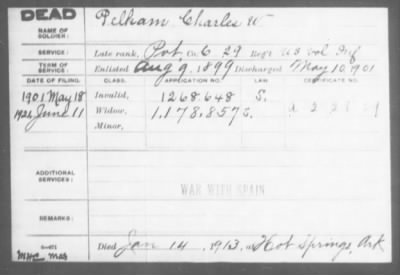 DEAD
NAME OF SOLDIER: Pelham Charles W
SERVICE: Late rank, Pvt. Co. C. 29 Reg't U.S. Vol. Inf
TERM OF SERVICE: Enlisted Aug 9. 1899 Discharged May 10, 1901
DATE OF FILING. CLASS. APPLICATION NO. LAW. CERTIFICATE NO.
1901 May 18 Invalid, 1268.648 S.
June 11 Widow, 1.178.857 S.
Minor,
ADDITIONAL SERVICES:
WAR WITH SPAIN
REMARKS:
Died Jan 14, 1913, at Hot Springs, Ark